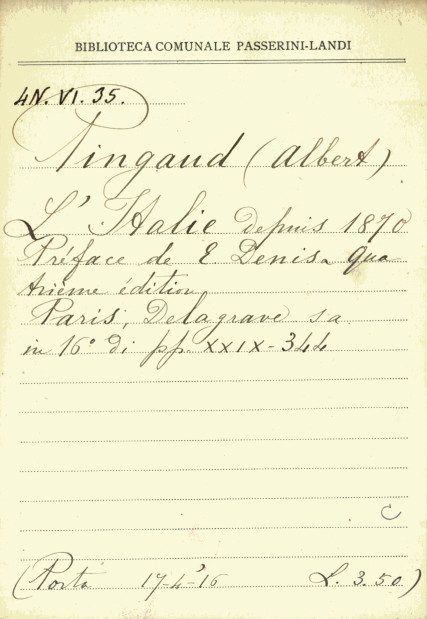 BIBLIOTECA COMUNALE PASSERINI-LANDI
4N. VI. 35.
Pingaud (Albert)
L'Italie depuis 1870
Préface de E Denis. Qua
trième édition,
Paris, Delagrave sa
in 16° di pp. XXIX-344
C
(Porta 17-4-16 L. 3.50)